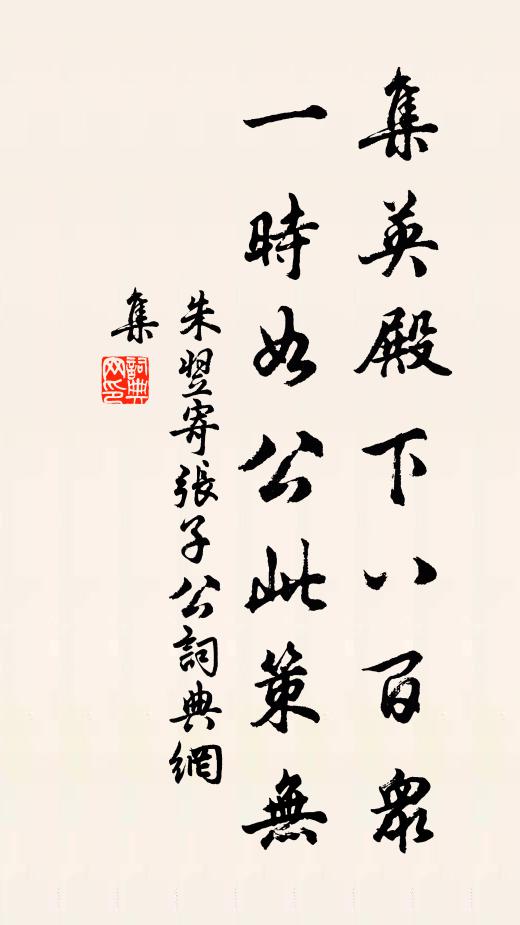 集英殿下八百眾
一時如公此策無
朱翌寄張子公詞典網
集
詞典網印